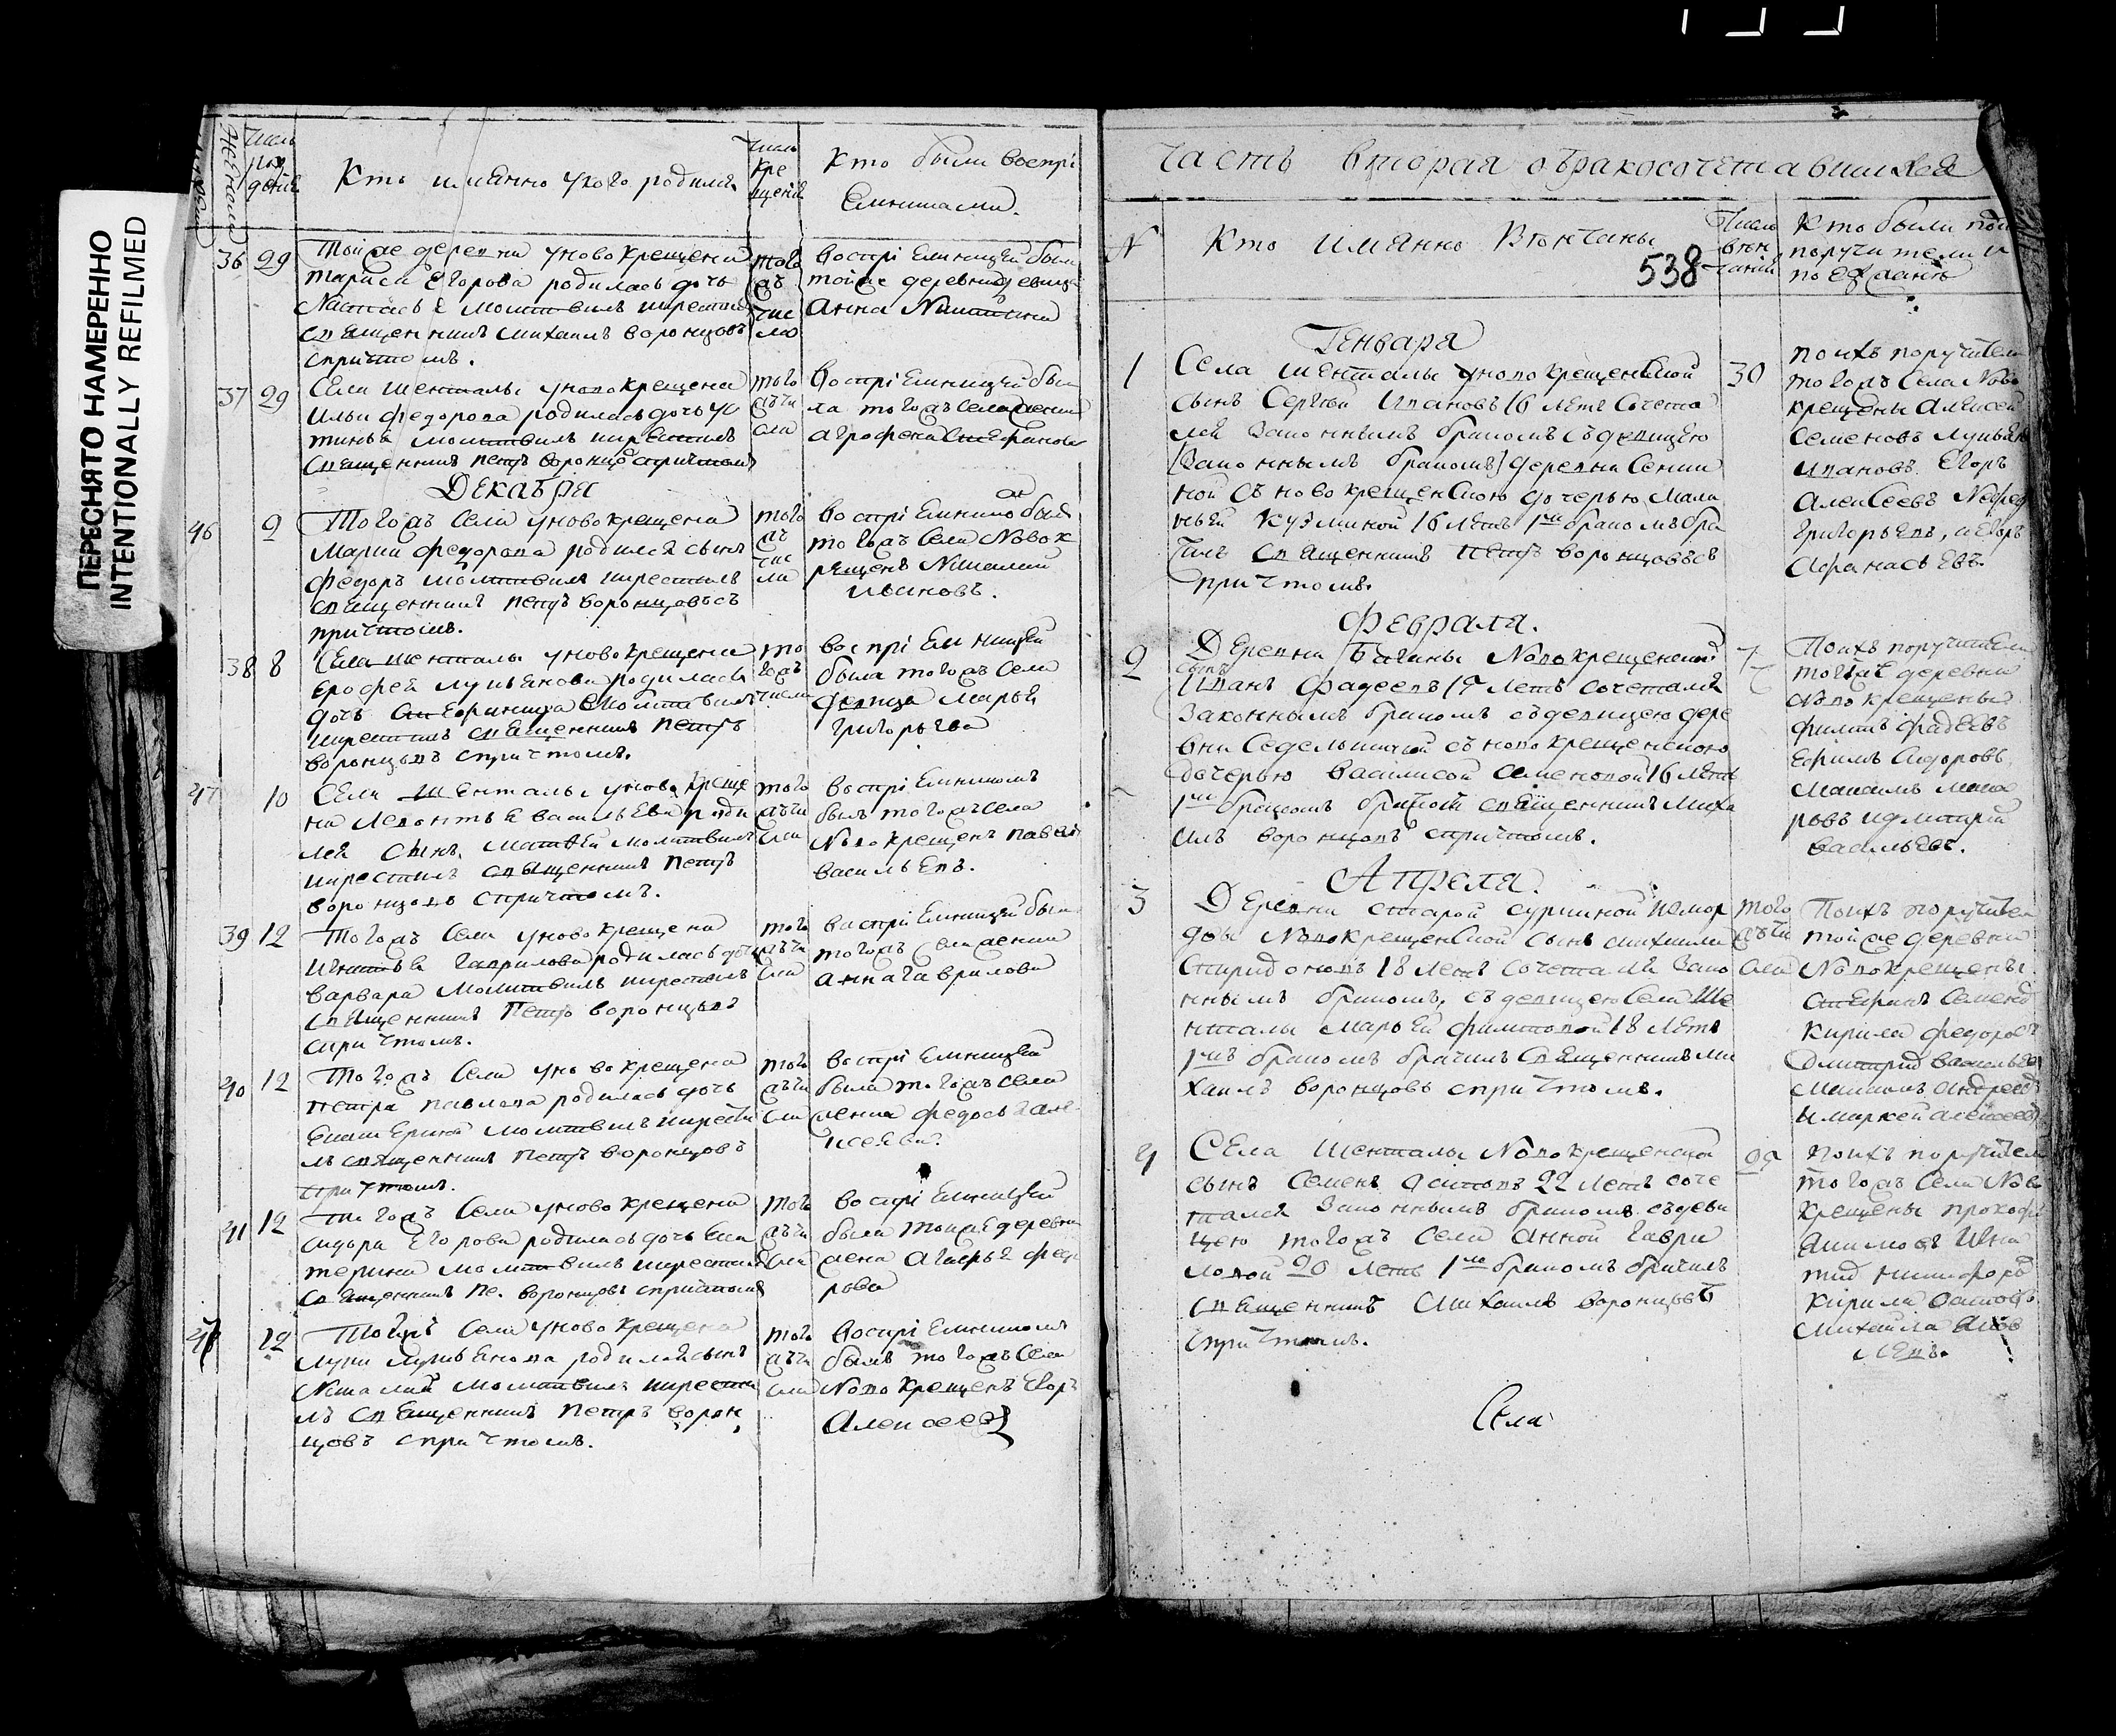 ПЕРЕСНЯТО НАМЕРЕННО
INTENTIONALLY REFILMED
Число рождения
Кто имянно у кого родился
Число крещения
Кто были воспрiемниками.
36 29 Той же деревни у новокрещена
Егорова родилась дочь
молитвилъ и крестилъ
священникъ Михаилъ Воронцовъ
с причтомъ.
того жъ числа
воспрiемницей была
той же деревни девица
Анна Никитина
37 29 Села Шенталы у новокрещена
Ильи Федорова родилась дочь Устинья
молитвилъ и крестилъ
священникъ Петръ Воронцовъ с причтомъ
того жъ числа
воспрiемницей была
того жъ села
Агрофена Стефанова
Декабря
46 2 Того жъ села у новокрещена
Федорова родился сынъ
Федоръ молитвилъ и крестилъ
священникъ Петръ Воронцовъ съ
причтомъ.
того жъ числа
воспрiемникомъ былъ
того жъ села новокрещенъ
Ивановъ.
38 8 Села Шенталы у новокрещена
Ерофея Лукьянова родилась
дочь молитвилъ
и крестилъ священникъ Петръ
Воронцовъ с причтомъ.
того жъ числа
воспрiемницей
была того жъ села
девица Марья
Григорьева
47 10 Села Шенталы у новокрещена
Леонтья Васильева родился
сынъ Матвей молитвилъ
и крестилъ священникъ Петръ
Воронцовъ с причтомъ.
того жъ числа
воспрiемникомъ
былъ того жъ села
новокрещенъ Павелъ
Васильевъ.
39 12 Того жъ села у новокрещена
Игнатья Гаврилова родилась дочь
Варвара молитвилъ и крестилъ
священникъ Петръ Воронцовъ
с причтомъ.
того жъ числа
воспрiемницей была
того жъ села женка
Анна Гаврилова
40 12 Того жъ села у новокрещена
Петра Павлова родилась дочь
Екатерина молитвилъ и крестилъ
священникъ Петръ Воронцовъ
с причтомъ.
того жъ числа
воспрiемницей
была того жъ села
женка Федосья Алексеева.
41 12 Того жъ села у новокрещена
Сидора Егорова родилась дочь Екатерина
молитвилъ и крестилъ
священникъ Пе. Воронцовъ с причтомъ
того жъ числа
воспрiемницей
была той же деревни
жена Федорова
48 12 села у новокрещена
Лукьянова родился сынъ
молитвилъ и крестилъ
священникъ Петръ Воронцовъ
с причтомъ.
того жъ числа
воспрiемникомъ
былъ того жъ села
новокрещенъ Егоръ
Алексеевъ
Часть вторая о бракосочетавшихся
N Кто имянно венчаны
538
Число венчанiй
Кто были поручители и поезжане
Генваря
1 Села Шенталы новокрещенской
сынъ Сергей Ивановъ 16 летъ сочетался
законнымъ бракомъ съ девицею
(законнымъ бракомъ) деревни
съ новокрещенскою дочерью Маланьей
Кузминой 16 летъ 1мъ бракомъ
священникъ Петръ Воронцовъ съ
причтомъ.
30
По ихъ поручители
того жъ села новокрещены
Алексей Семеновъ Лукьянъ
Ивановъ Егоръ
Алексеевъ
Григорьевъ, и Егоръ
Афанасьевъ.
Февраля.
2 Деревни новокрещенской
сынъ Иванъ Фадеевъ летъ сочетался
законнымъ бракомъ съ девицею деревни
съ новокрещенскою
дочерью Василисой Семеновой 16 летъ
1мъ бракомъ священникъ Михаилъ
Воронцовъ с причтомъ.
7
По ихъ поручители
той же деревни
новокрещены
Филипъ Фадеевъ
Ефимъ Сидоровъ
Максимъ
и Дмитрий
Васильевъ.
Апреля.
3 Деревни старой
новокрещенской сынъ Михайла
Спиридоновъ 18 летъ сочетался законнымъ
бракомъ, съ девицею села Шенталы
Марьей Филиповой 18 летъ
1мъ бракомъ брачилъ священникъ Михаилъ
Воронцовъ с причтомъ.
того жъ числа
По ихъ поручители
той же деревни
новокрещены
Стефанъ Семеновъ
Кирила Федоровъ
Дмитрий Васильевъ
Максимъ Андреевъ
Алексеевъ
4 Села Шенталы новокрещенской
сынъ Семенъ Осиповъ 22 летъ сочетался
законнымъ бракомъ съ девицею
того жъ села Анной Гавриловой
20 летъ 1мъ бракомъ брачилъ
священникъ Михаилъ Воронцовъ
с причтомъ.
По ихъ поручители
того жъ села новокрещены
Никифоровъ
Кирила Осиповъ
Михайла
Села